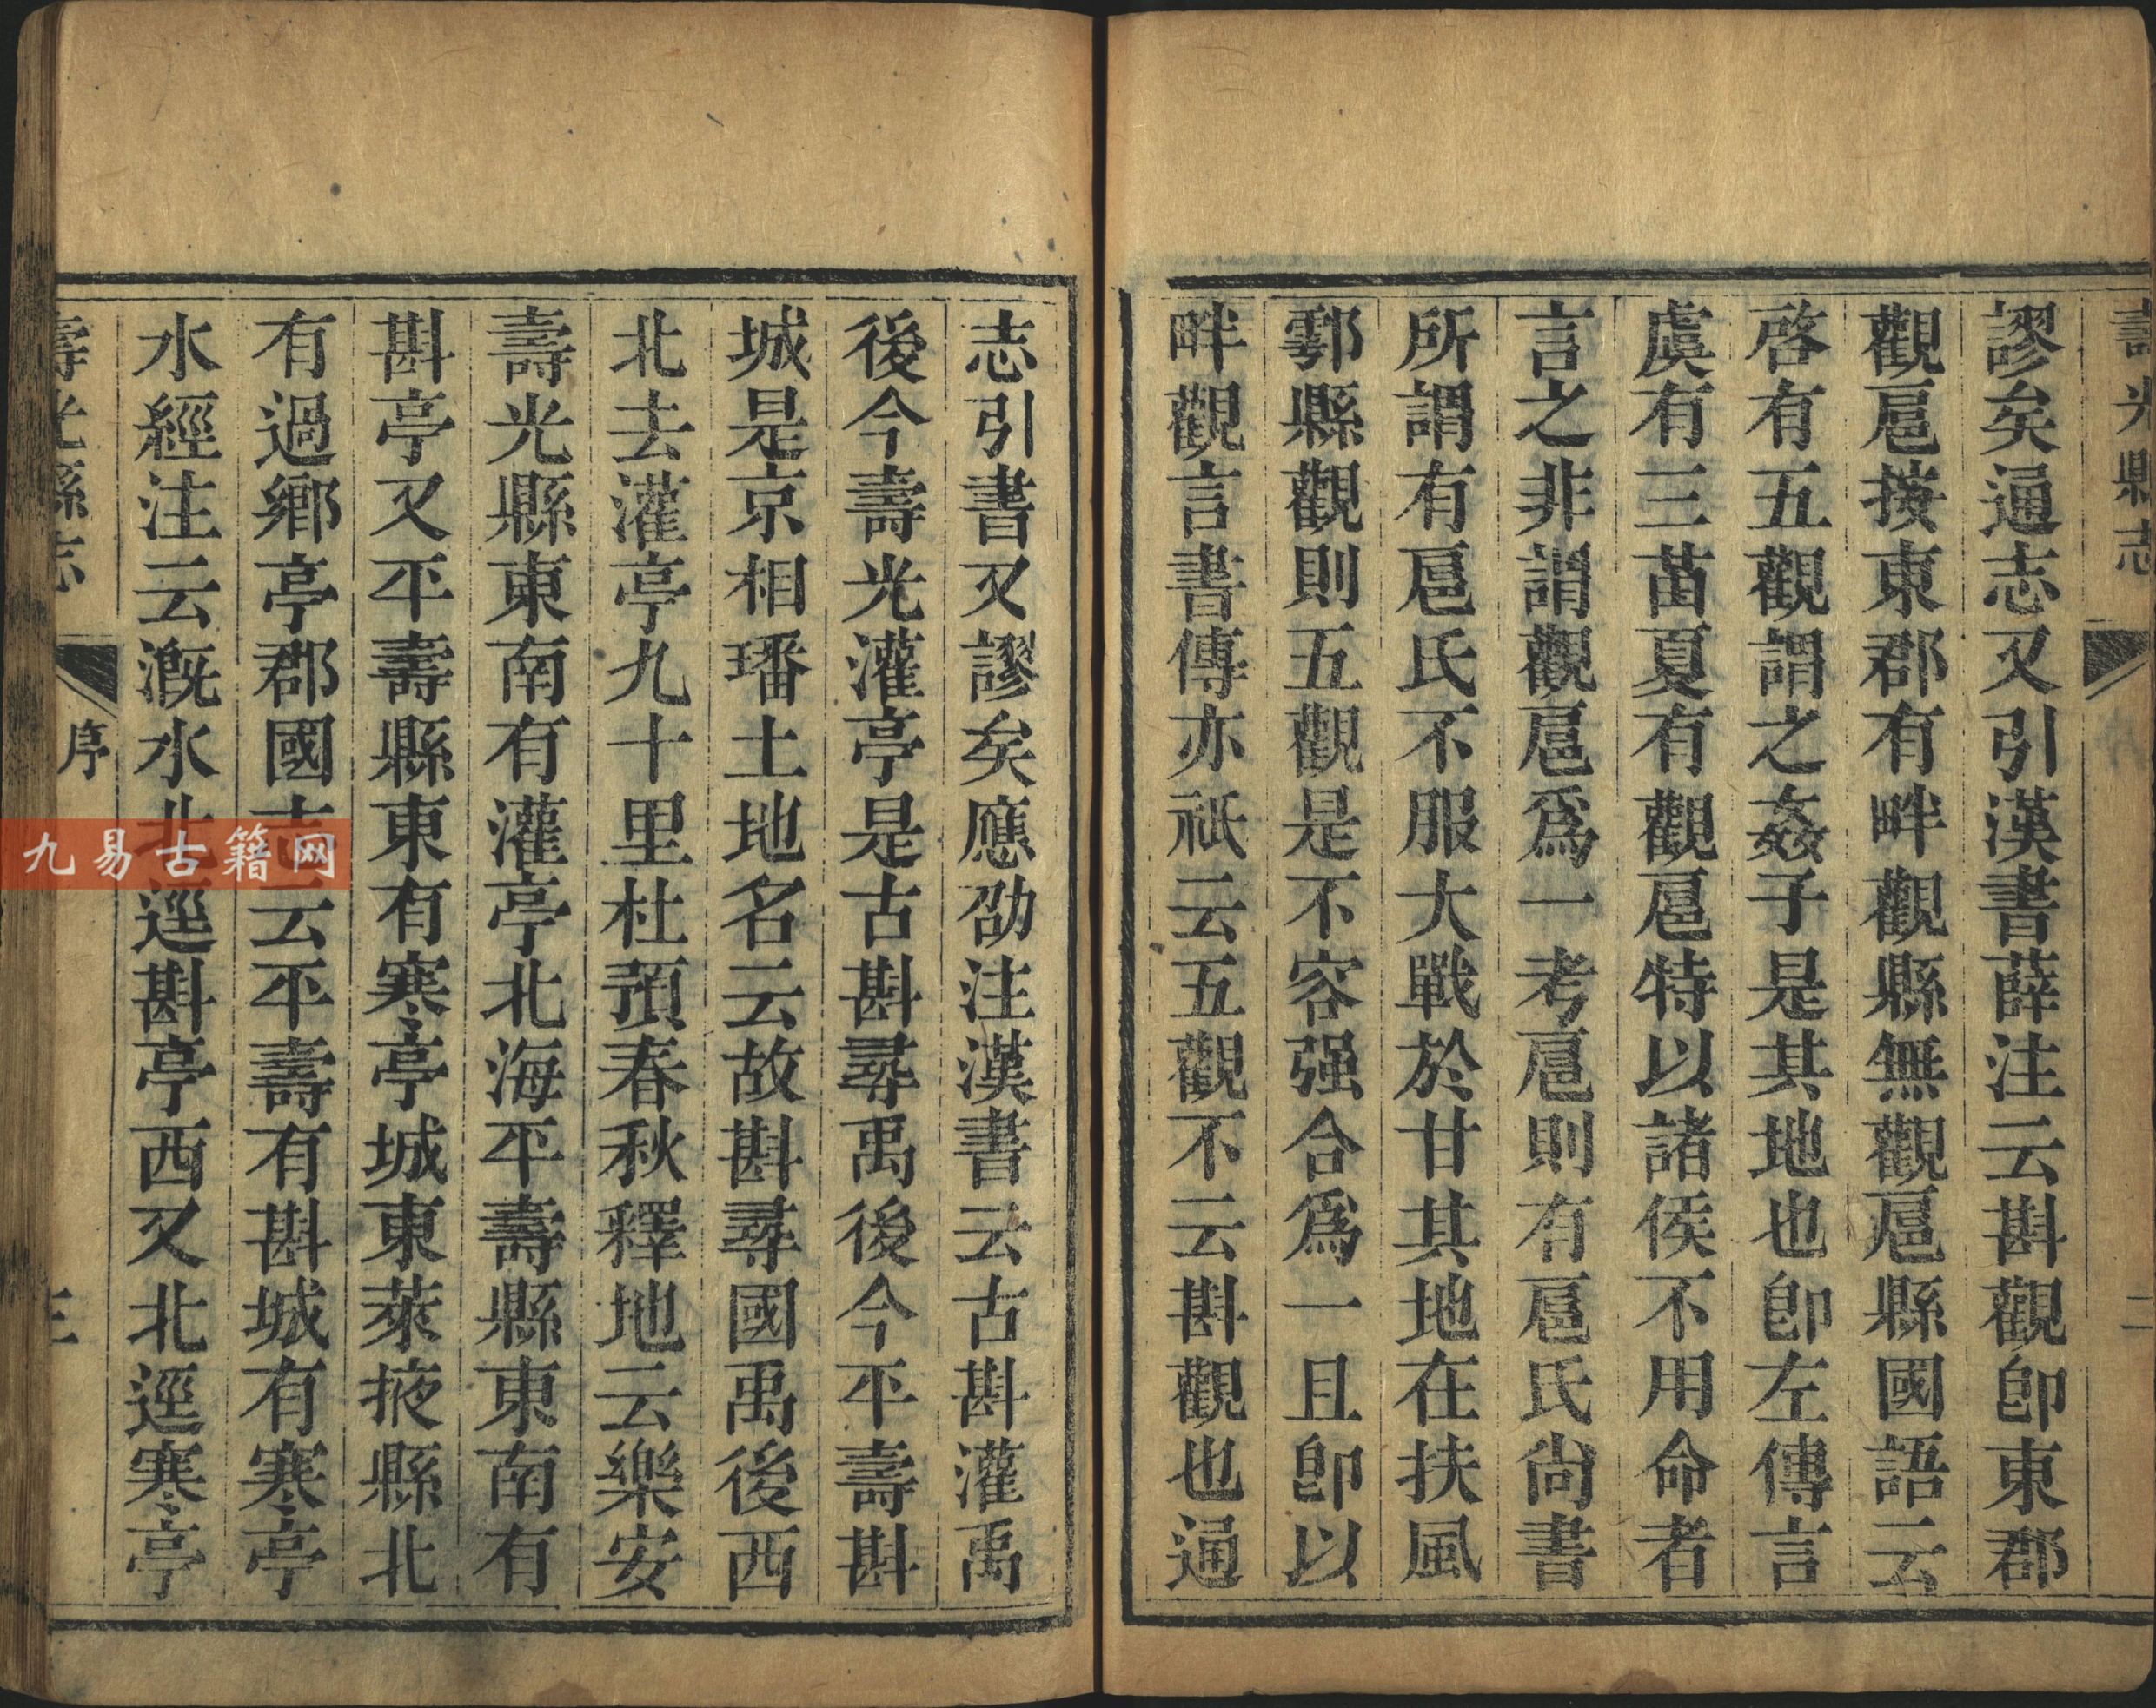 壽光縣志
二
謬矣通志又引漢書薛注云斟觀卽東郡
觀扈按東郡有畔觀縣無觀扈縣國語云
啓有五觀謂之姦子是其地也卽左傳言
虞有三苗夏有觀扈特以諸侯不用命者
言之非謂觀扈爲一考扈則有扈氏尙書
所謂有扈氏不服大戰於甘其地在扶風
鄠縣觀則五觀是不容强合爲一且卽以
畔觀言書傳亦祇云五觀不云斟觀也通
志引書又謬矣應劭注漢書云古斟灌禹
後今壽光灌亭是古斟尋禹後今平壽斟
城是京相璠土地名云故斟尋國禹後西
北去灌亭九十里杜預春秋釋地云樂安
壽光縣東南有灌亭北海平壽縣東南有
斟亭又平壽縣東有寒亭城東萊掖縣北
有過鄉亭郡國志云平壽有斟城有寒亭
水經注云溉水北逕斟亭西又北逕寒亭
壽光縣志
序
三
九易古籍网